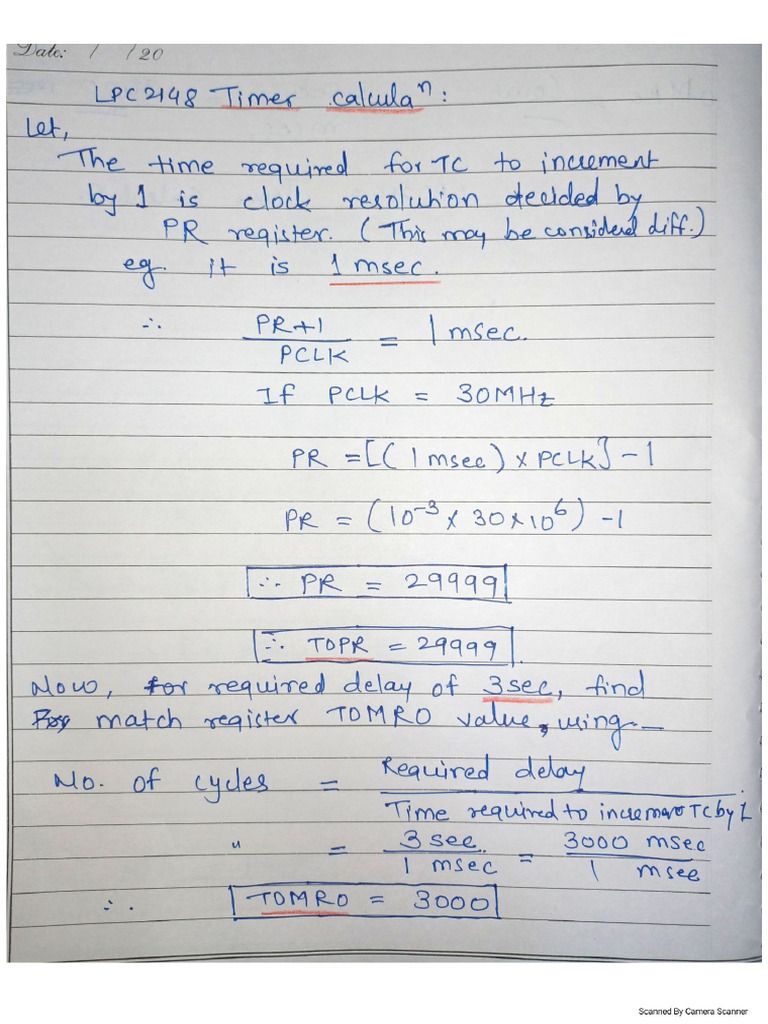 Date: / /20
LPC2148 Timer calculaⁿ:
Let,
The time required for TC to increment
by 1 is clock resolution decided by
PR register. (This may be considered diff.)
eg. it is 1 msec.
∴ PR+1 / PCLK = 1 msec.
If PCLK = 30MHz
PR = [(1 msec) × PCLK] - 1
PR = (10⁻³ × 30 × 10⁶) - 1
∴ PR = 29999
∴ T0PR = 29999
Now, for required delay of 3sec, find
match register T0MR0 value, using--
No. of cycles = Required delay / Time required to increment TC by 1
" = 3 sec / 1 msec = 3000 msec / 1 msec
∴ T0MR0 = 3000
Scanned By Camera Scanner